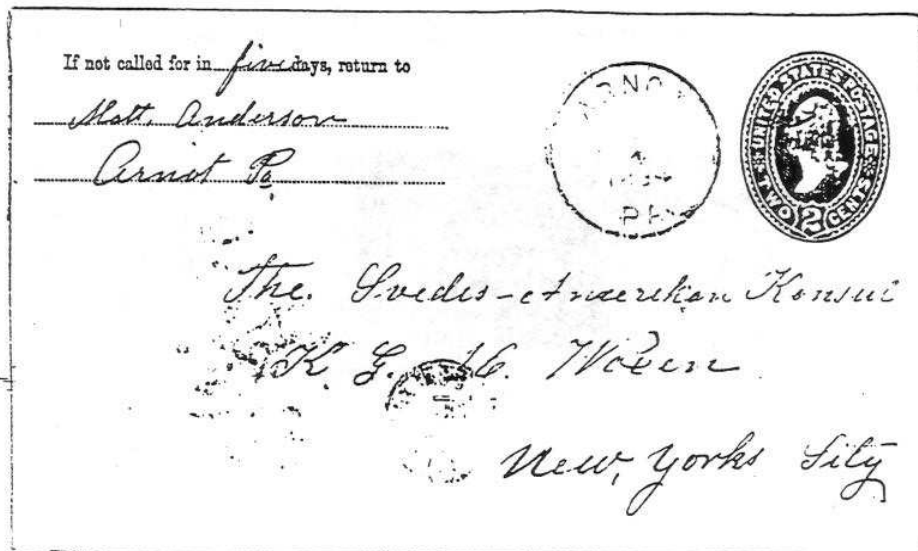 If not called for in five days, return to
Matt. Anderson
Arnot Pa
ARNOT
PA
UNITED STATES POSTAGE
TWO 2 CENTS
The. Svedis-Amerikan Konsul
K G. Wolen
New, Yorks Sity